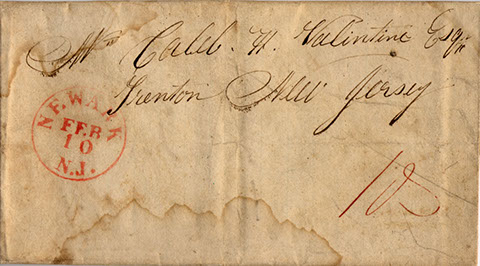 Mr Caleb. H. Valintine Esqr
Trenton New Jersey
NEWARK
FEB
10
N.J.
10